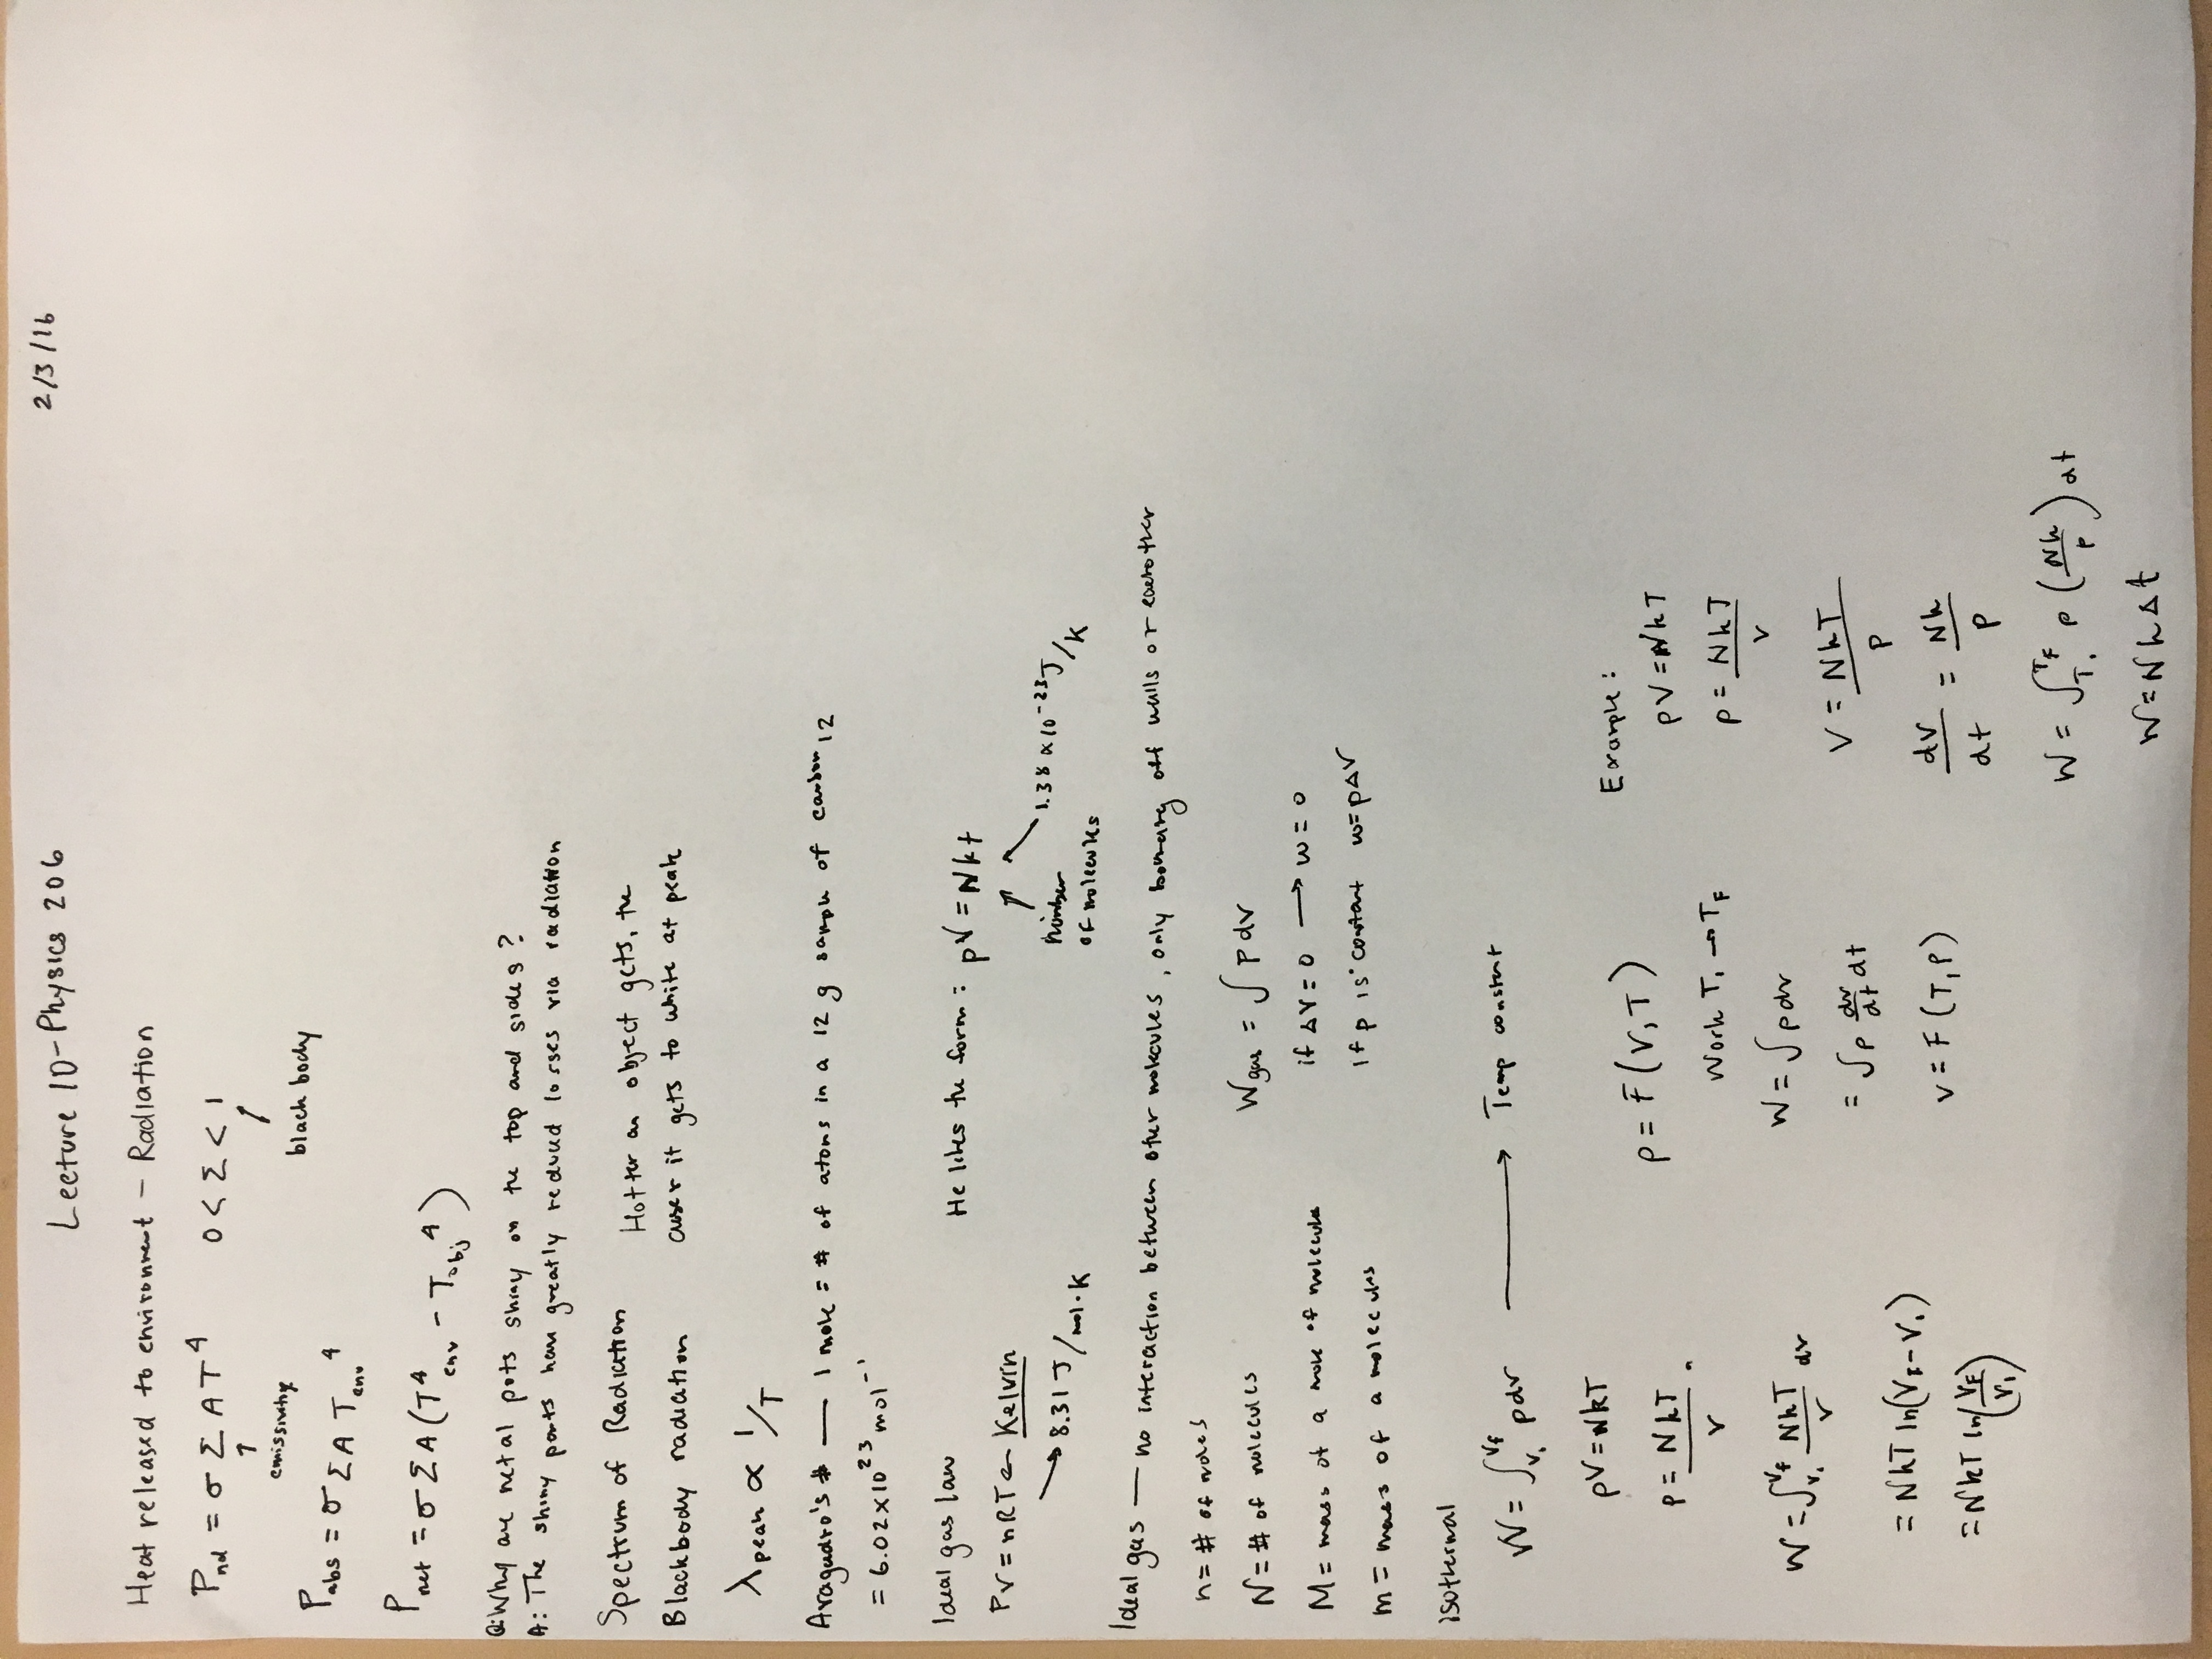 Lecture 10 - Physics 206 2/3/16
Heat released to environment - Radiation
P_rad = σ Σ A T^4 0 < Σ < 1
↑ emissivity black body
P_abs = σ Σ A T_env^4
P_net = σ Σ A (T^4_env - T_obj^4)
Q: Why are metal pots shiny on the top and sides?
A: The shiny parts have greatly reduced losses via radiation
Spectrum of Radiation Hotter an object gets, the
Blackbody radiation closer it gets to white at peak
λ_peak ∝ 1/T
Avagadro's # — 1 mole = # of atoms in a 12 g sample of carbon 12
= 6.02 x 10^23 mol^-1
Ideal gas law He likes the form: pV = Nkt
PV = nRT ← Kelvin
→ 8.31 J/mol·K number of molecules 1.38 x 10^-23 J/K
Ideal gas — no interaction between other molecules, only bouncing off walls or eachother
n = # of moles
N = # of molecules W_gas = ∫ p dv
M = mass of a mole of molecule if ΔV = 0 → w = 0
m = mass of a molecules if p is constant w = pΔV
isothermal
W = ∫_{V_i}^{V_f} p dv → Temp constant
pV = NkT
p = NkT/V
W = ∫_{V_i}^{V_f} NkT/V dv
= NkT ln(V_F - V_i)
= NkT ln(V_F/V_i)
p = F(V, T)
Work T_i → T_F
W = ∫ p dv
= ∫ p dv/dt dt
V = F(T, P)
Example:
pV = NkT
p = NkT/V
V = NkT/P
dV/dt = Nk/P
W = ∫_{T_i}^{T_F} p (Nk/P) dt
W = NkΔt